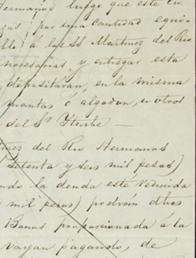 hermanos luego que esté en
por una cantidad equi
á los SS Martinez del Rio
necesarias y entregar esta
depositaran, en la misma
mantas ó algodon, u otros
del Sr Yturbe
del Rio Hermanos
setenta y seis mil pesos,
la deuda este vencida
mil pesos) podran dhos
Banco proporcionada á la
vayan pagando, de